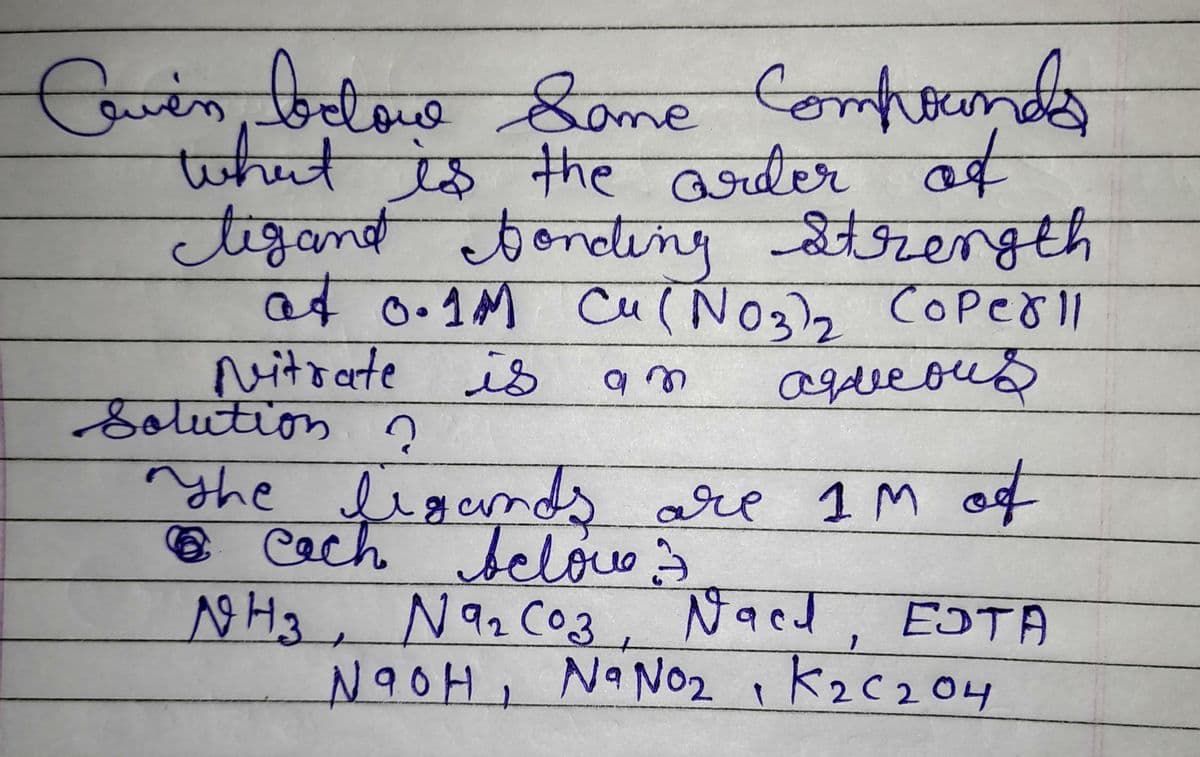 Given, below Some Compounds
what is the order of
ligand bonding Strength
of 0.1M Cu(NO3)2 CoPer II
Nitrate is an aqueous
Solution ?
The ligands are 1 M of
each below :
NH3, Na2CO3, Nacl, EDTA
NaOH, NaNO2, K2C2O4